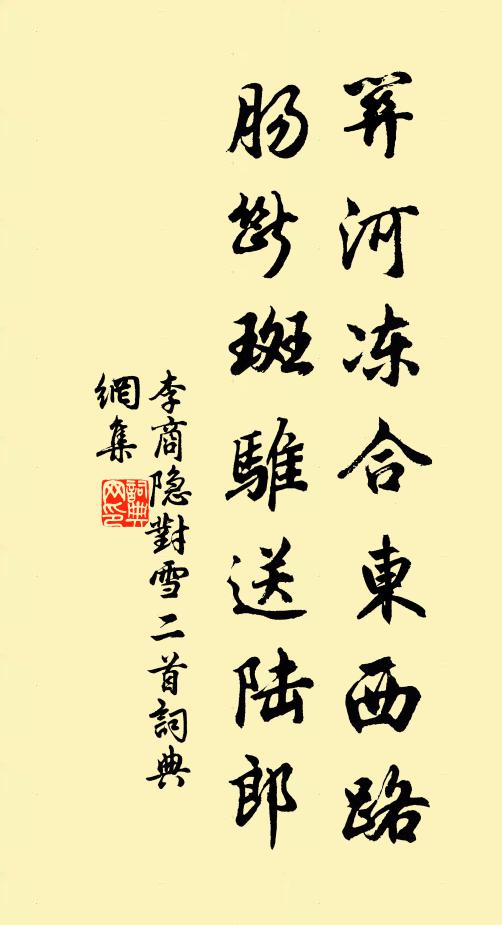 关河冻合東西路
肠斷斑騅送陆郎
李商隐對雪二首詞典
網集
詞典
网印